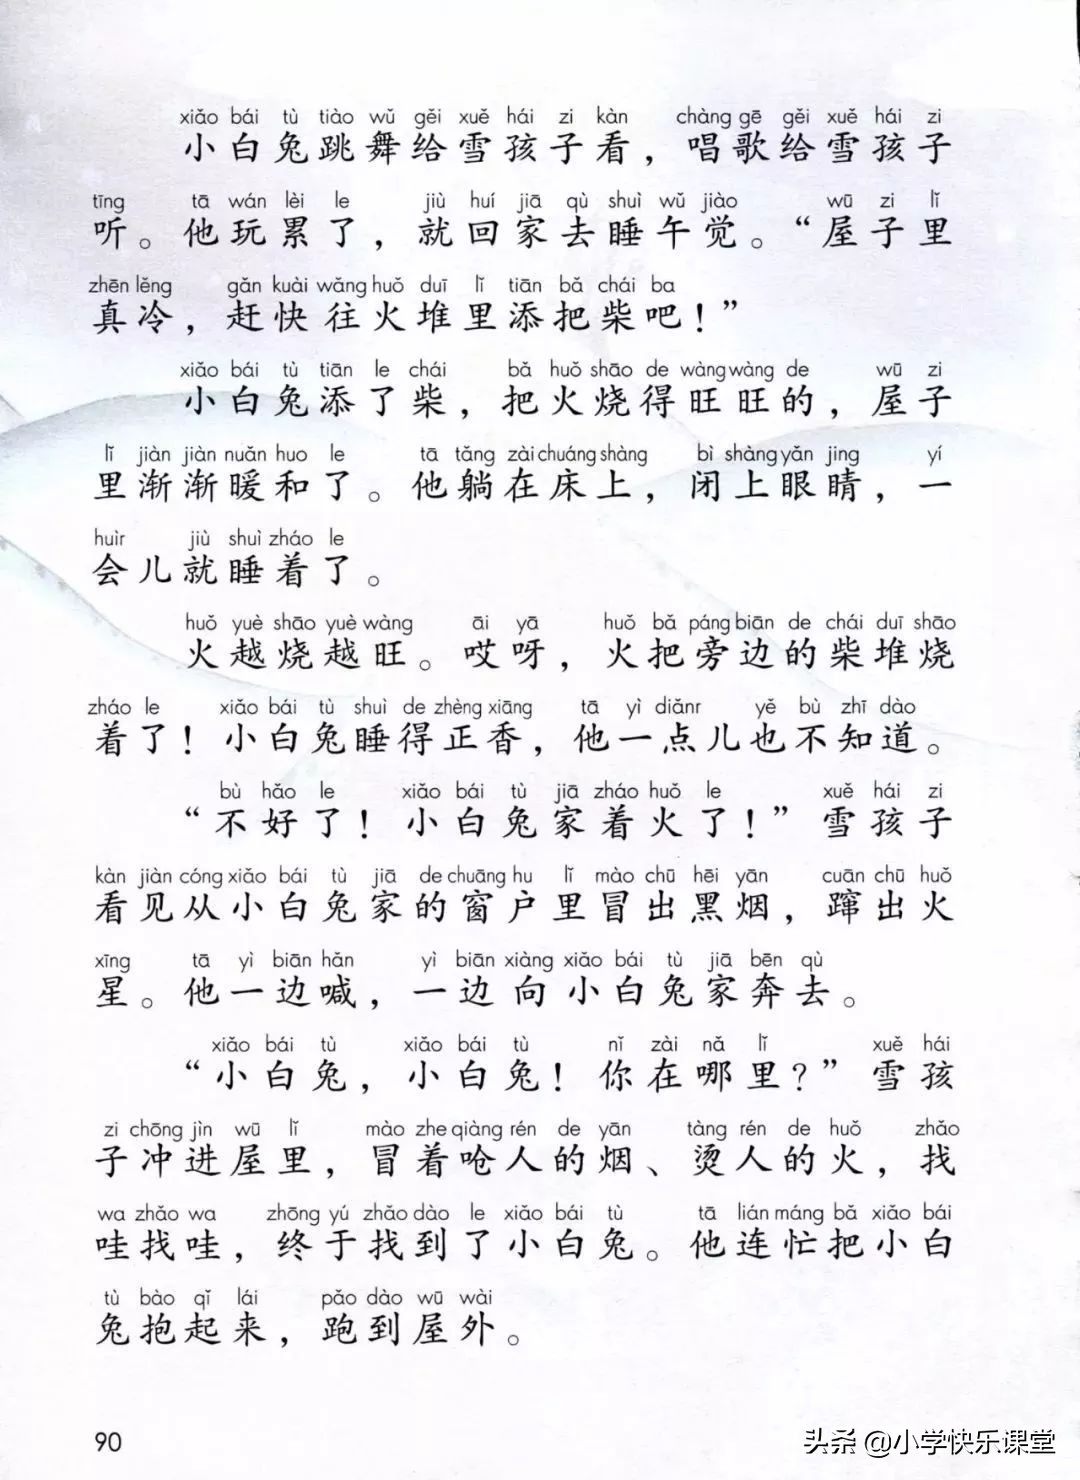 xiǎo bái tù tiào wǔ gěi xuě hái zi kàn chàng gē gěi xuě hái zi
小白兔跳舞给雪孩子看，唱歌给雪孩子
tīng tā wán lèi le jiù huí jiā qù shuì wǔ jiào wū zi lǐ
听。他玩累了，就回家去睡午觉。“屋子里
zhēn lěng gǎn kuài wǎng huǒ duī lǐ tiān bǎ chái ba
真冷，赶快往火堆里添把柴吧！”
xiǎo bái tù tiān le chái bǎ huǒ shāo de wàng wàng de wū zi
小白兔添了柴，把火烧得旺旺的，屋子
lǐ jiàn jiàn nuǎn huo le tā tǎng zài chuáng shàng bì shàng yǎn jing yí
里渐渐暖和了。他躺在床上，闭上眼睛，一
huìr jiù shuì zháo le
会儿就睡着了。
huǒ yuè shāo yuè wàng āi yā huǒ bǎ páng biān de chái duī shāo
火越烧越旺。哎呀，火把旁边的柴堆烧
zháo le xiǎo bái tù shuì de zhèng xiāng tā yì diǎnr yě bù zhī dào
着了！小白兔睡得正香，他一点儿也不知道。
bù hǎo le xiǎo bái tù jiā zháo huǒ le xuě hái zi
“不好了！小白兔家着火了！”雪孩子
kàn jiàn cóng xiǎo bái tù jiā de chuāng hu lǐ mào chū hēi yān cuān chū huǒ
看见从小白兔家的窗户里冒出黑烟，蹿出火
xīng tā yì biān hǎn yì biān xiàng xiǎo bái tù jiā bēn qù
星。他一边喊，一边向小白兔家奔去。
xiǎo bái tù xiǎo bái tù nǐ zài nǎ lǐ xuě hái
“小白兔，小白兔！你在哪里？”雪孩
zi chōng jìn wū lǐ mào zhe qiàng rén de yān tàng rén de huǒ zhǎo
子冲进屋里，冒着呛人的烟、烫人的火，找
wa zhǎo wa zhōng yú zhǎo dào le xiǎo bái tù tā lián máng bǎ xiǎo bái
哇找哇，终于找到了小白兔。他连忙把小白
tù bào qǐ lái pǎo dào wū wài
兔抱起来，跑到屋外。
90
头条 @小学快乐课堂